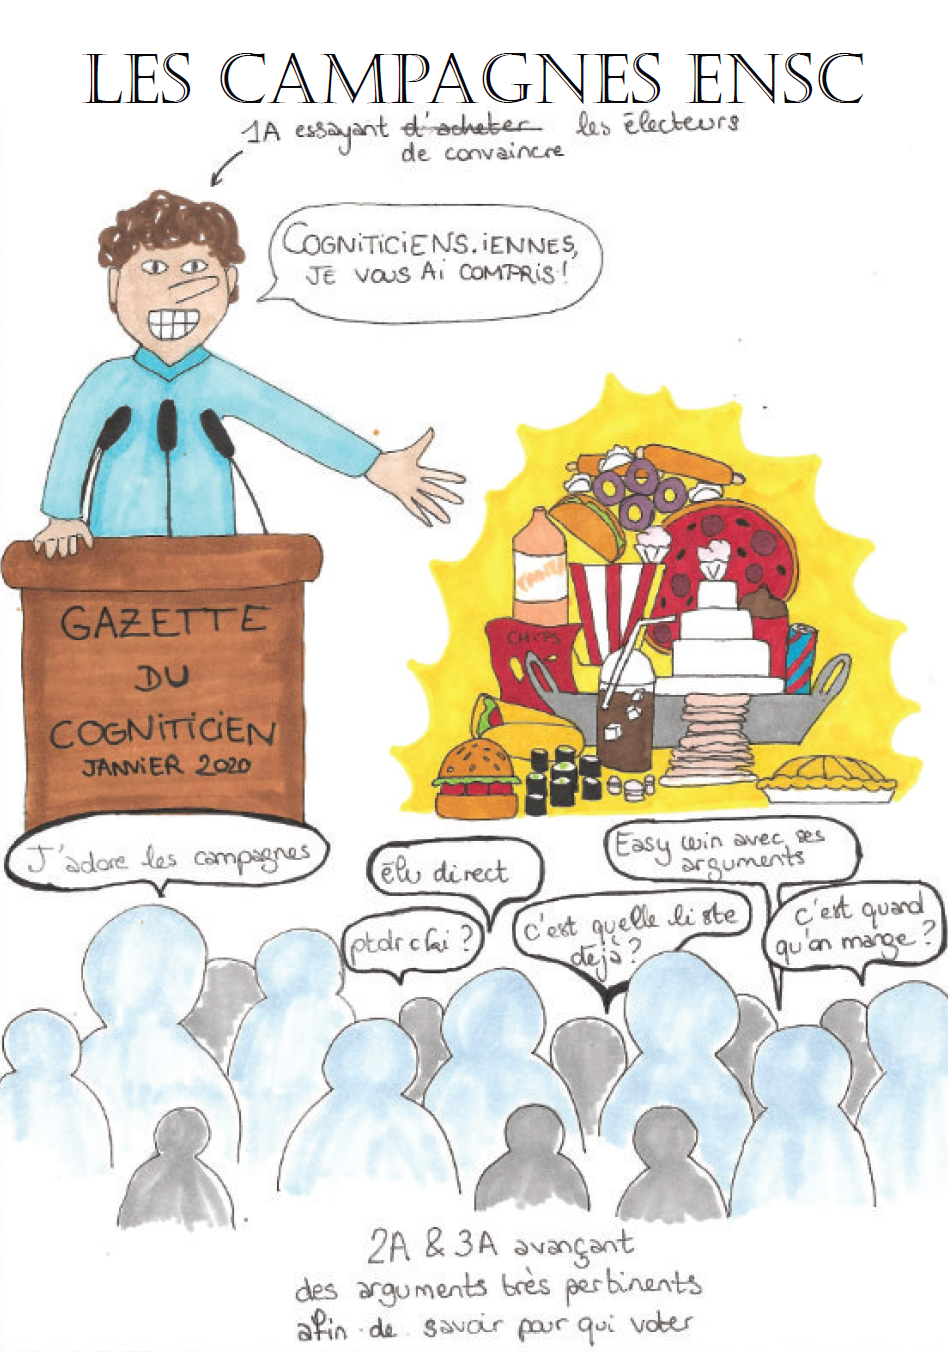 LES CAMPAGNES ENSC
1A essayant d'acheter les électeurs
de convaincre
COGNITICIENS.IENNES,
JE VOUS AI COMPRIS!
FANTA
CHIPS
GAZETTE
DU
COGNITICIEN
JANVIER 2020
J'adore les campagnes
élu direct
Easy win avec ses
arguments
ptdr c ki ?
c'est quelle liste
dejà?
c'est quand
qu'on mange ?
2A & 3A avançant
des arguments très pertinents
afin de savoir pour qui voter